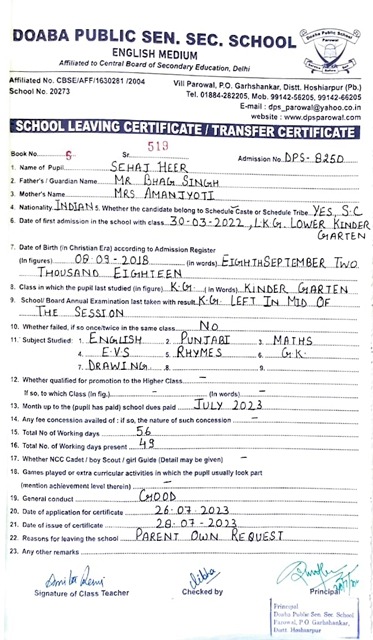 DOABA PUBLIC SEN. SEC. SCHOOL
ENGLISH MEDIUM
Affiliated to Central Board of Secondary Education, Delhi
Affiliated No. CBSE/AFF/1630281 /2004
School No. 20273
Vill Parowal, P.O. Garhshankar, Distt. Hoshiarpur (Pb.)
Tel. 01884-282205, Mob. 99142-56205, 99142-66205
E-mail : dps_parowal@yahoo.co.in
website : www.dpsparowal.com
SCHOOL LEAVING CERTIFICATE / TRANSFER CERTIFICATE
Book No. 6 Sr. 519 Admission No. DPS-8250
1. Name of Pupil SEHAJ HEER
2. Father's / Guardian Name MR BHAG SINGH
3. Mother's Name MRS AMANJYOTI
4. Nationality INDIAN 5. Whether the candidate belong to Schedule Caste or Schedule Tribe. YES, S.C
6. Date of first admission in the school with class 30-03-2022, L.K.G. LOWER KINDER
GARTEN
7. Date of Birth (in Christian Era) according to Admission Register
(in figures) 08-09-2018 (in words) EIGHTH SEPTEMBER TWO
THOUSAND EIGHTEEN
8. Class in which the pupil last studied (in figure) K.G. (in Words) KINDER GARTEN
9. School/ Board Annual Examination last taken with result. K.G. LEFT IN MID OF
THE SESSION
10. Whether failed, if so once/twice in the same class NO
11. Subject Studied: 1. ENGLISH 2. PUNJABI 3. MATHS
4. E.V.S 5. RHYMES 6. G.K.
7. DRAWING 8. 9.
12. Whether qualified for promotion to the Higher Class —
If so, to which Class (in Fig.) — (In words) —
13. Month up to the (pupil has paid) school dues paid JULY 2023
14. Any fee concession availed of : if so, the nature of such concession —
15. Total No of Working days 56
16. Total No. of Working days present 49
17. Whether NCC Cadet / boy Scout / girl Guide (Detail may be given) —
18. Games played or extra curricular activities in which the pupil usually look part
(mention achievement level therein) —
19. General conduct GOOD
20. Date of application for certificate 26-07-2023
21. Date of issue of certificate 28-07-2023
22. Reasons for leaving the school PARENT OWN REQUEST
23. Any other remarks
Signature of Class Teacher Checked by Principal
Principal
Doaba Public Sen. Sec. School
Parowal, P.O. Garhshankar,
Distt. Hoshiarpur